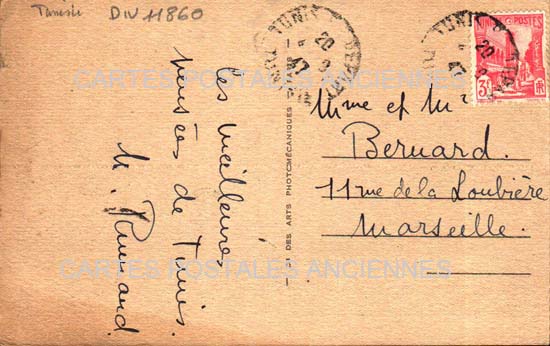 Tunisie DIV 11860
Les meilleures
pensées de Tunis.
Mme et Mr
Bernard.
11 rue de la Loubière
Marseille.
DES ARTS PHOTOMÉCANIQUES
TUNIS
20
47
TUNIS
20
POSTES
3F
RF
CARTES POSTALES ANCIENNES
CARTES POSTALES ANCIENNES